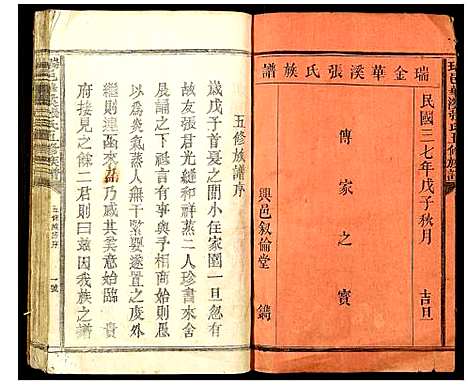 瑞金華溪張氏族譜
民國三七年戊子秋月 吉旦
傳家之寶
興邑敘倫堂 鐫
五修族譜序
歲戊子首夏之間小住家園一旦忽有
故友張君光縫和祥蒸二人珍書來舍
展誦之下祗言有與予相商始則忽忽
以為炎氣蒸人無干緊要遂置之度外
繼則理函來 品乃感其美意始臨 貴
府接見之餘二君則曰茲因我族之譜
五修族譜序 一號